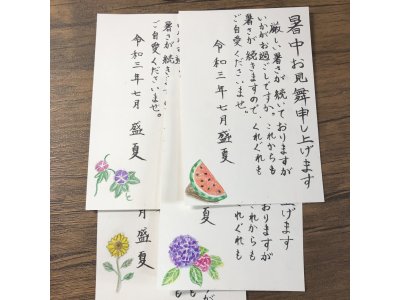 暑中お見舞申し上げます
厳しい暑さが続いておりますが
いかがお過ごしですか。これからも
暑さが続きますので、くれぐれも
ご自愛くださいませ。
令和三年七月 盛夏
暑さが続き
ご自愛くださいませ。
令和三年七月 盛夏
上げます
おりますが
これからも
くれぐれも
盛夏
月 盛夏